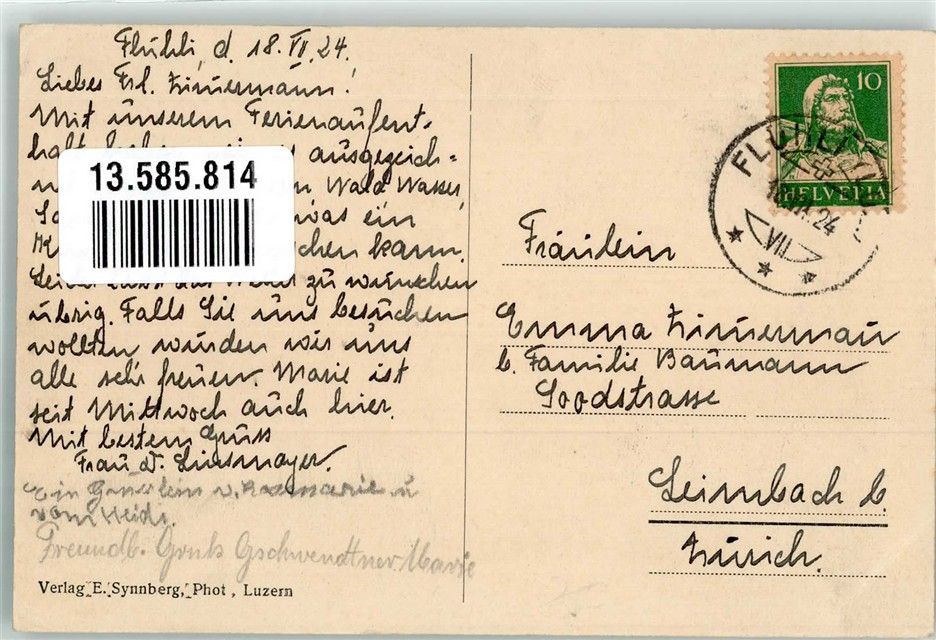 Flühli, d. 18. VII. 24.
Liebes Frl. Zimmermann!
Mit unserem Ferienaufent-
halt ausgezeich-
Wald Wasser,
was ein
kann.
zu wünschen
übrig. Falls Sie uns besuchen
wollten würden wir uns
alle sehr freuen. Marie ist
seit Mittwoch auch hier.
Mit bestem Gruss
Frau Dr.
Ein Grüsslein v. Rosmarie u
vom Heidi.
Freundl. Gruß Gschwendtner Marie
Verlag E. Synnberg, Phot., Luzern
13.585.814
10
HELVETIA
FLÜHLI
VII
24
Fräulein
Emma Zimmermann
b. Familie Baumann
Soodstrasse
Leimbach b.
Zürich.